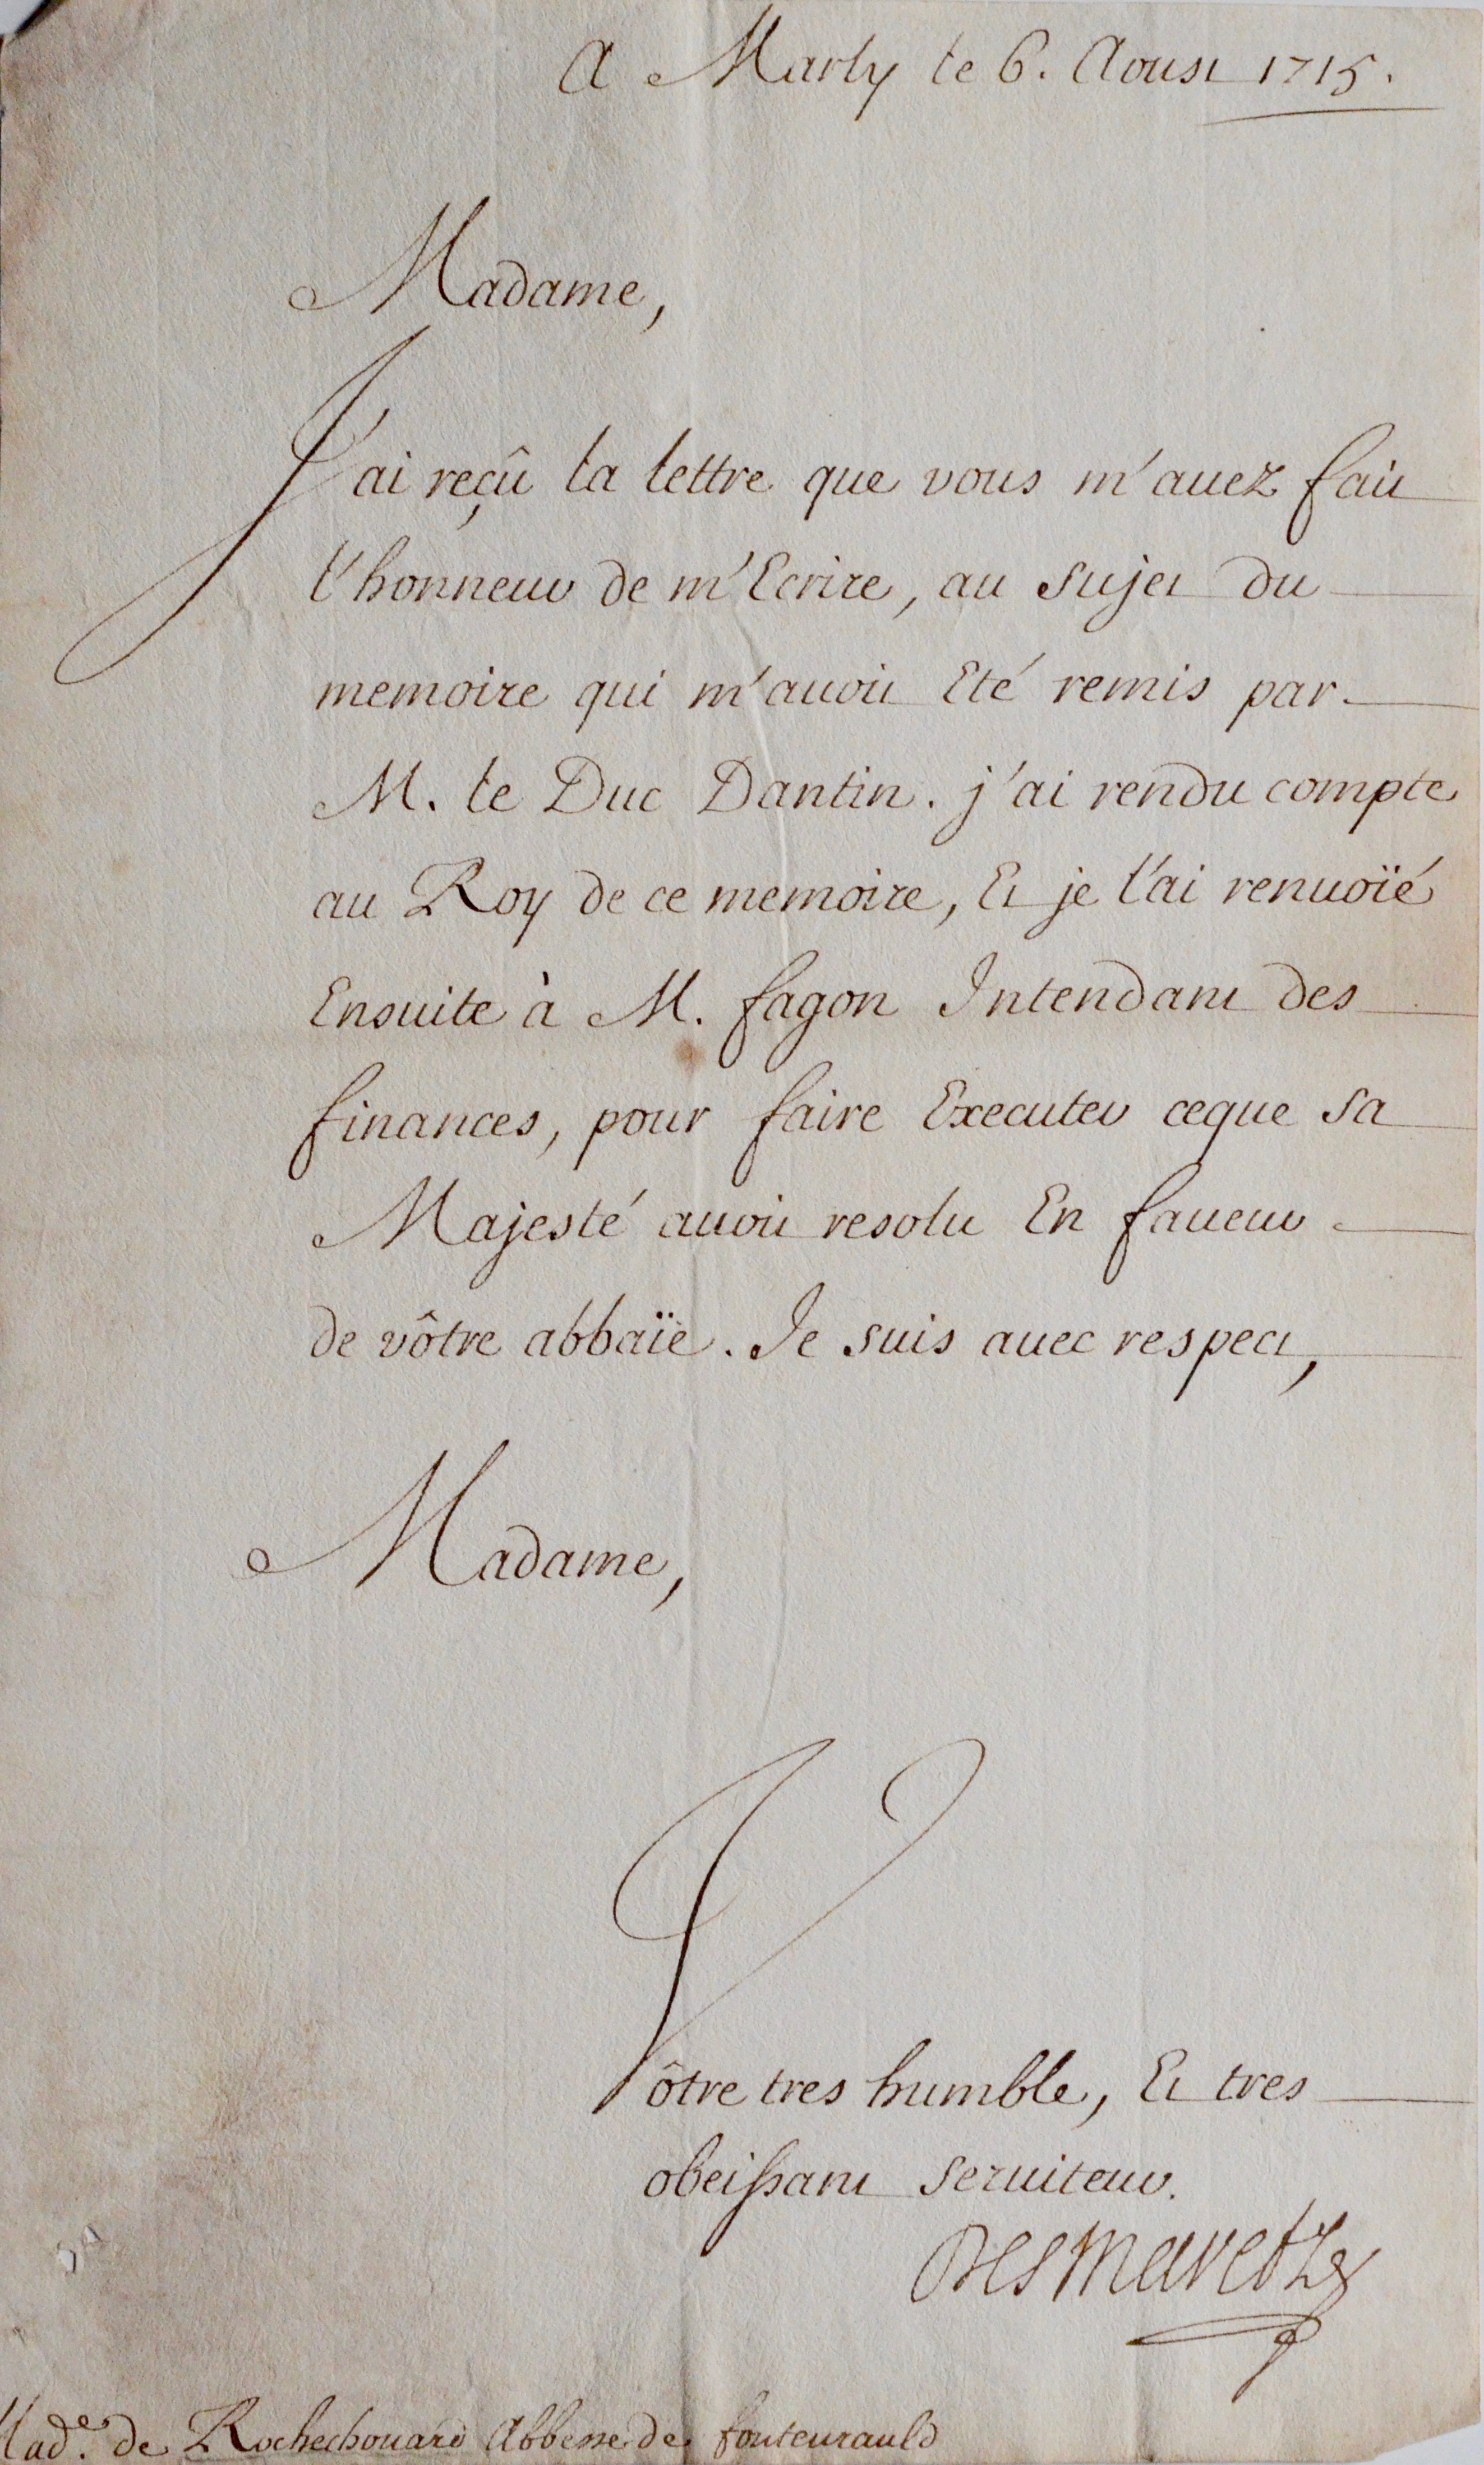 A Marly le 6. Aoust 1715.
Madame,
J'ai reçû la lettre que vous m'auez fait
l'honneur de m'Ecrire, au sujet du
memoire qui m'auoit Eté remis par
M. le Duc Dantin. j'ai rendu compte
au Roy de ce memoire, Et je l'ai renuoïé
Ensuite à M. fagon Intendant des
finances, pour faire Executer ceque sa
Majesté auoit resolu En faueur
de vôtre abbaïe. Je suis auec respect,
Madame,
Vôtre tres humble, Et tres
obeissant seruiteur.
Desmaretz
Made. de Rochechouard Abbesse de fonteurauld